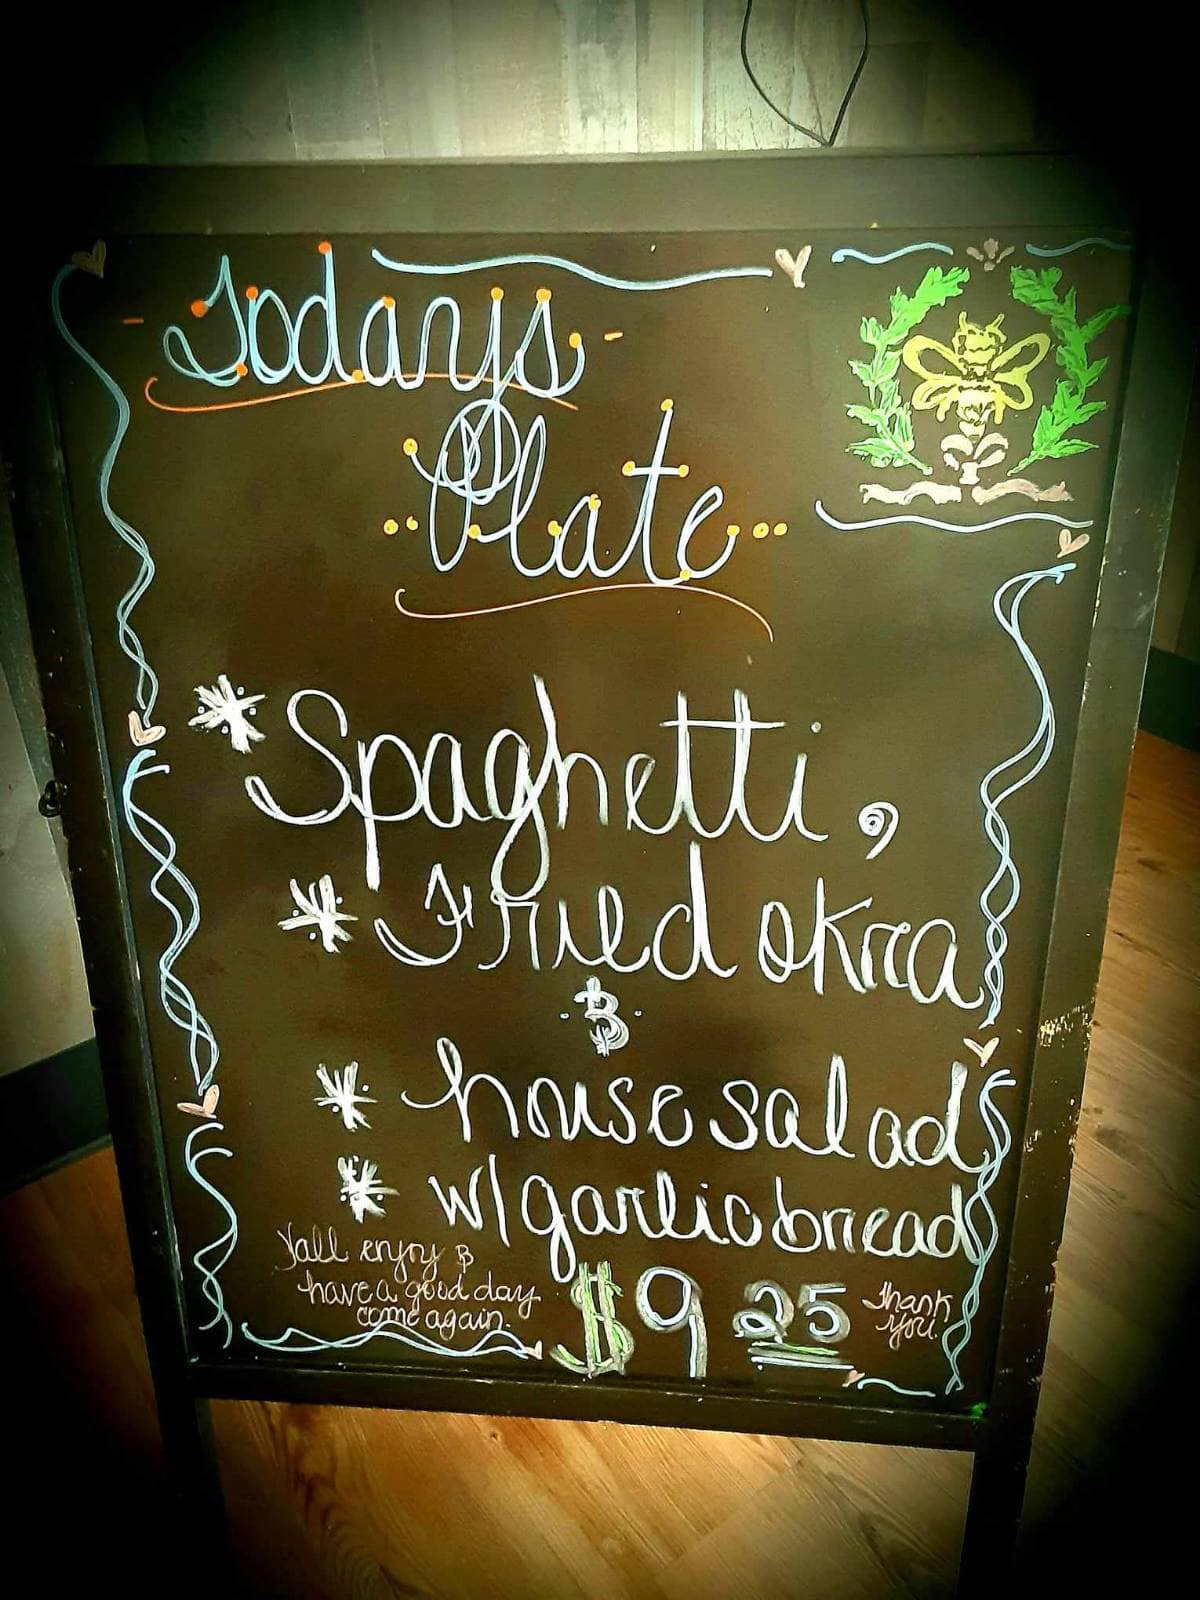 Todays
Plate
* Spaghetti,
* Fried okra
&
* house salad
* w/garlic bread
Y'all enjoy &
have a good day
come again.
$9 25
Thank
you.